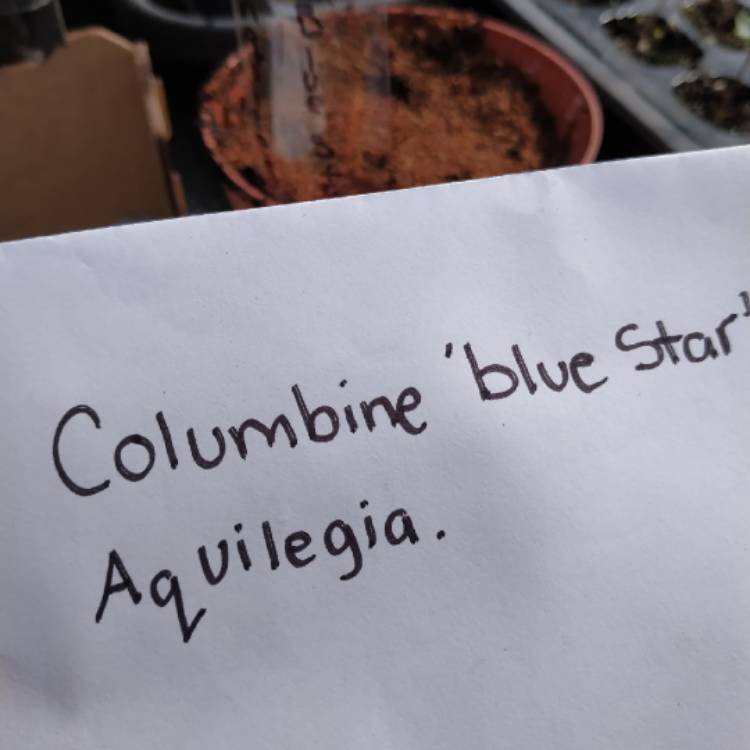 Columbine 'blue Star'
Aquilegia.